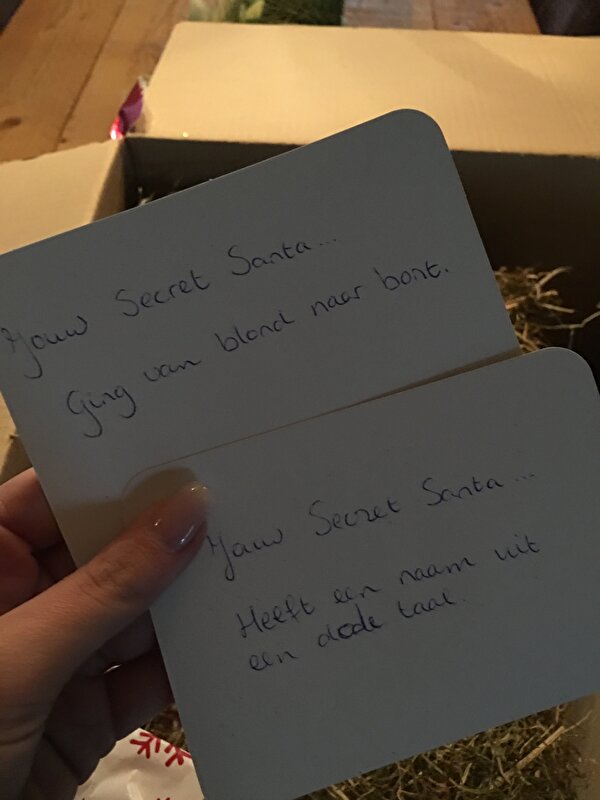 Jouw Secret Santa...
Ging van blond naar bont.
Jouw Secret Santa...
Heeft een naam uit
een dode taal.